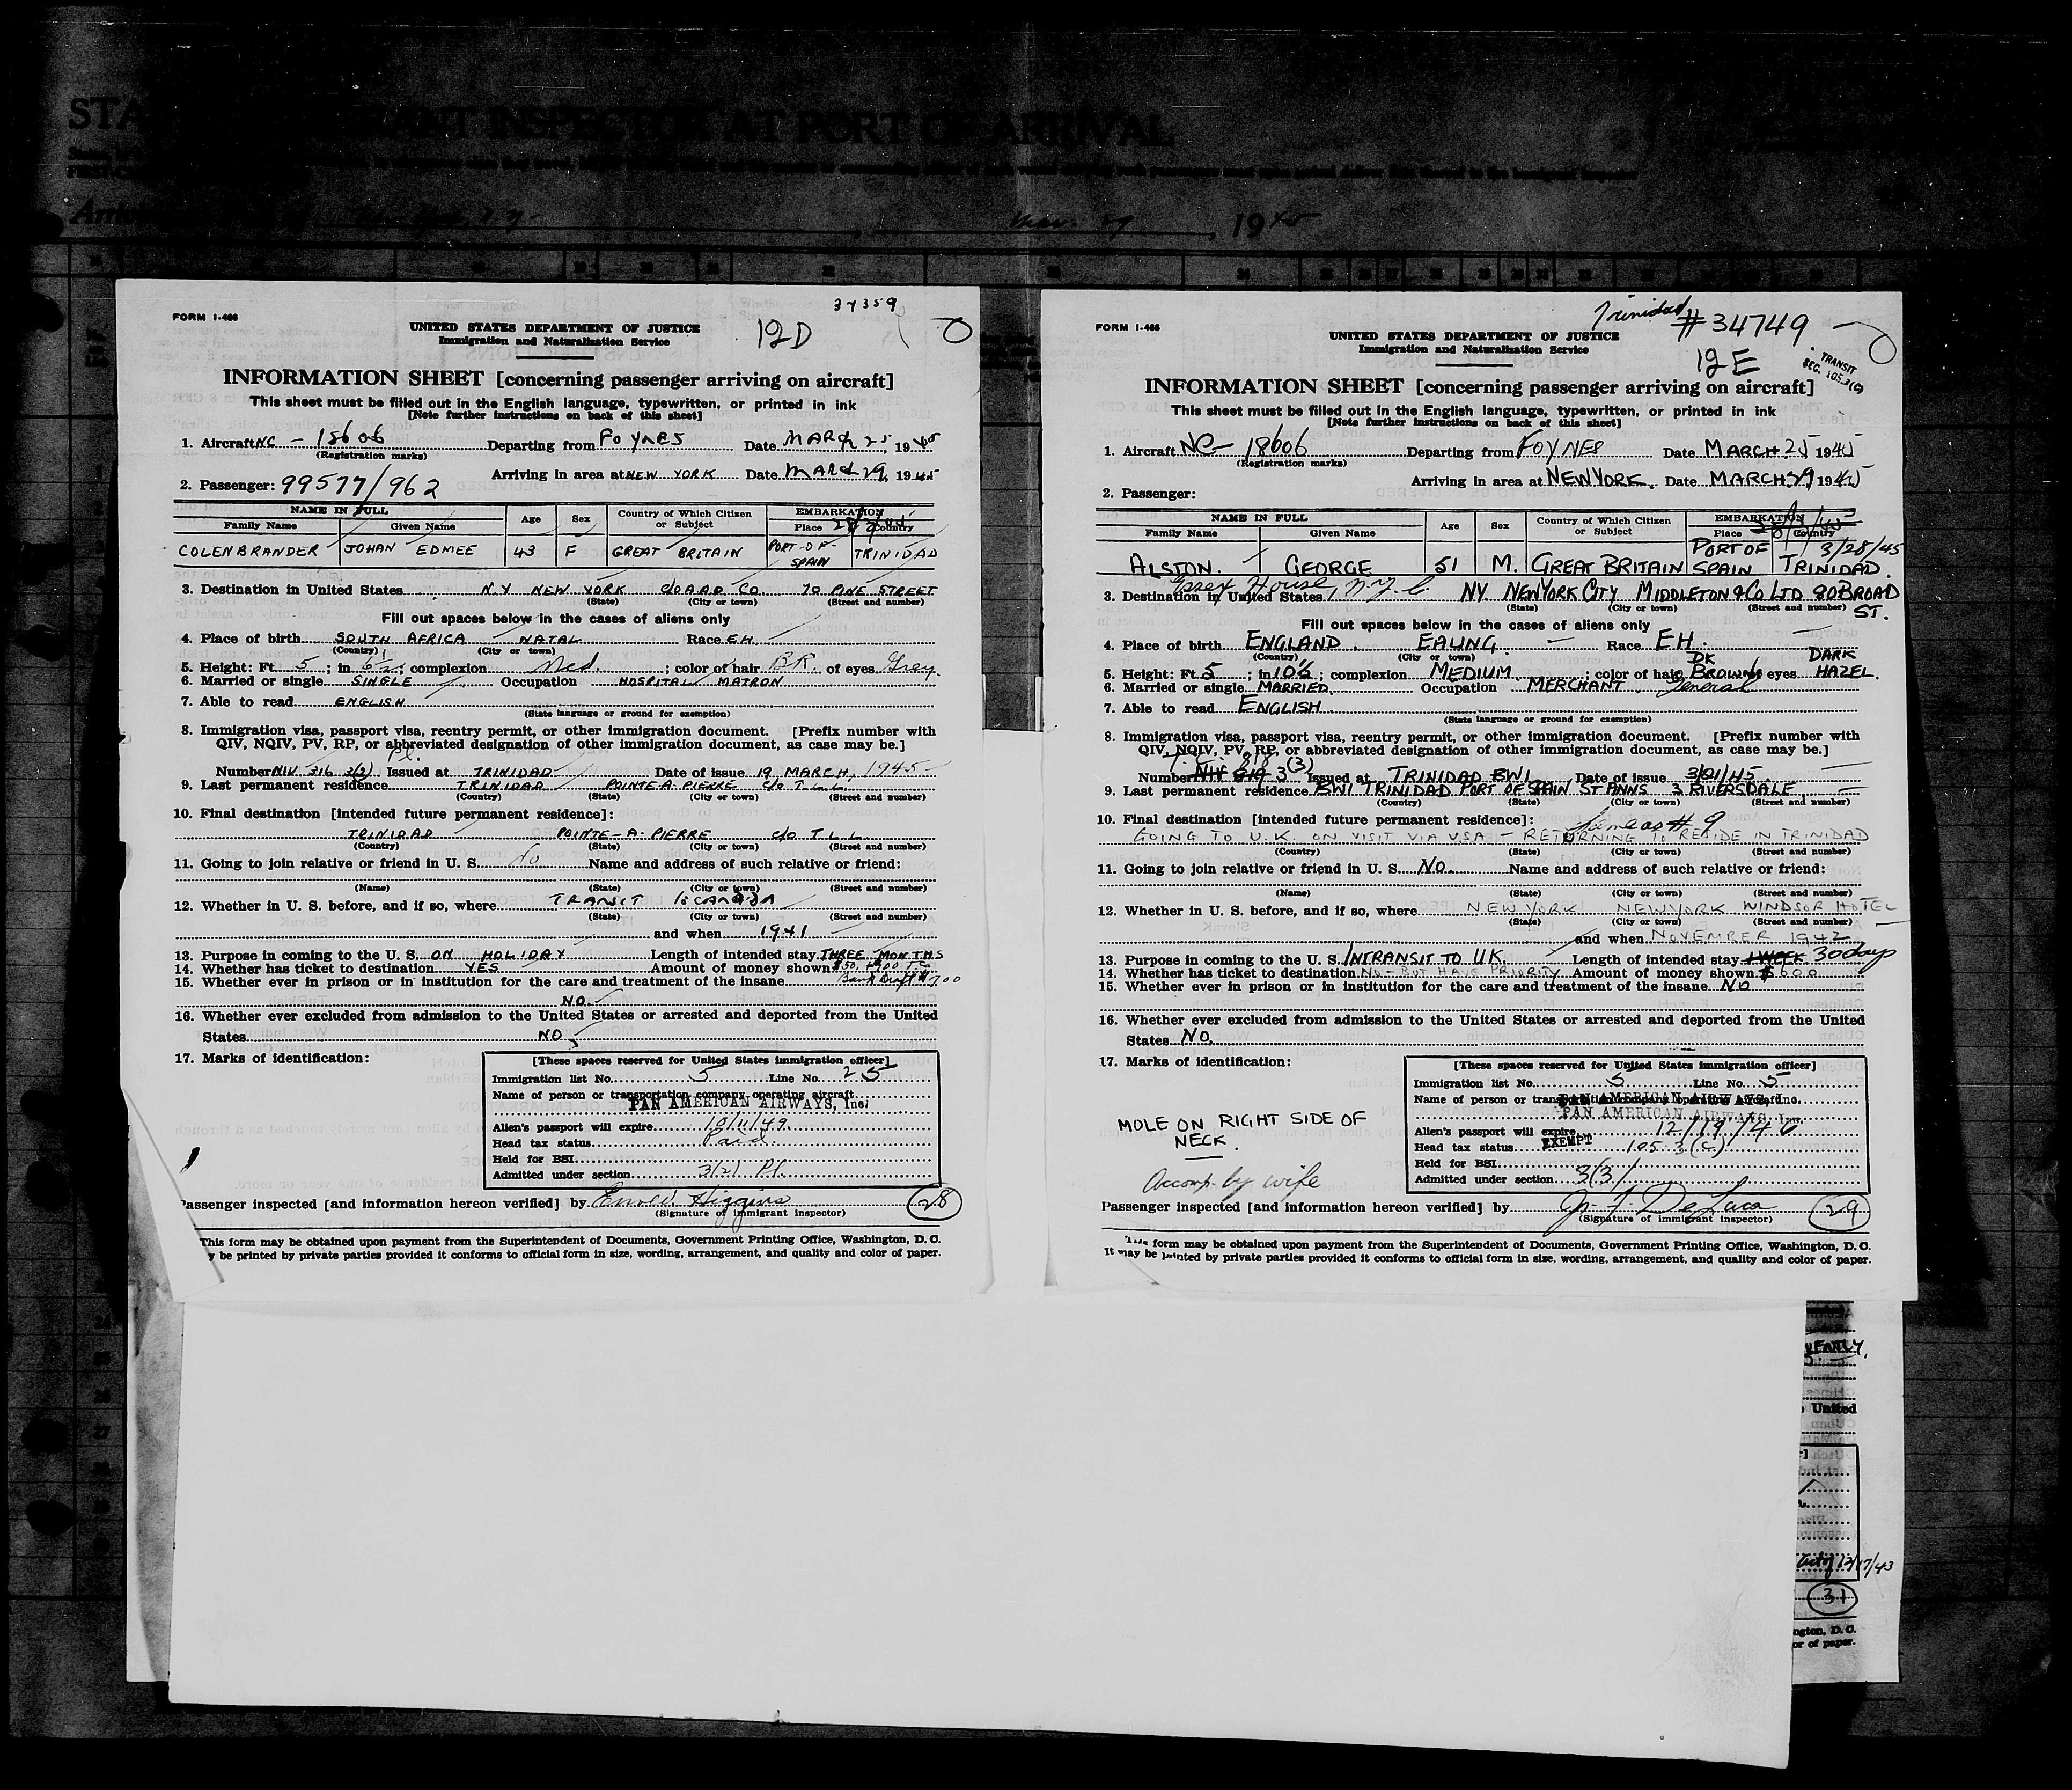 ARRIVAL
INSPECTOR AT PORT OF ARRIVAL
19
37359
FORM I-466
12D
UNITED STATES DEPARTMENT OF JUSTICE
Immigration and Naturalization Service
INFORMATION SHEET [concerning passenger arriving on aircraft]
This sheet must be filled out in the English language, typewritten, or printed in ink
[Note further instructions on back of this sheet]
1. Aircraft NC - 18606 Departing from FOYNES Date MARCH 25, 1945
(Registration marks)
Arriving in area at NEW YORK Date MARCH 29, 1945
2. Passenger: 99577/962
NAME IN FULL Age Sex Country of Which Citizen or Subject EMBARKATION
Family Name Given Name Place Country
COLENBRANDER JOHAN EDMEE 43 F GREAT BRITAIN PORT-OF-SPAIN TRINIDAD
3. Destination in United States N.Y NEW YORK C/O A.A.D. CO. 70 PINE STREET
(State) (City or town) (Street and number)
Fill out spaces below in the cases of aliens only
4. Place of birth SOUTH AFRICA NATAL Race E.H.
(Country) (City or town)
5. Height: Ft. 5; in 6 1/2; complexion Med.; color of hair BR. of eyes Grey.
6. Married or single SINGLE Occupation HOSPITAL MATRON
7. Able to read ENGLISH
(State language or ground for exemption)
8. Immigration visa, passport visa, reentry permit, or other immigration document. [Prefix number with
QIV, NQIV, PV, RP, or abbreviated designation of other immigration document, as case may be.]
Number NIV 316 3(2) Pl. Issued at TRINIDAD Date of issue 19, MARCH, 1945
9. Last permanent residence TRINIDAD POINTE-A-PIERRE C/O T.L.L.
(Country) (State) (City or town) (Street and number)
10. Final destination [intended future permanent residence]:
TRINIDAD POINTE-A-PIERRE C/O T.L.L
(Country) (State) (City or town) (Street and number)
11. Going to join relative or friend in U. S. No Name and address of such relative or friend:
(Name) (State) (City or town) (Street and number)
12. Whether in U. S. before, and if so, where TRANSIT to CANADA
(State) (City or town) (Street and number)
and when 1941
13. Purpose in coming to the U. S. ON HOLIDAY Length of intended stay THREE MONTHS
14. Whether has ticket to destination YES Amount of money shown $50,
15. Whether ever in prison or in institution for the care and treatment of the insane Bank Draft $700
NO.
16. Whether ever excluded from admission to the United States or arrested and deported from the United
States NO
17. Marks of identification:
[These spaces reserved for United States immigration officer]
Immigration list No. 5 Line No. 25
Name of person or transportation company operating aircraft
PAN AMERICAN AIRWAYS, Inc.
Alien's passport will expire 10/11/49.
Head tax status Paid.
Held for BSI
Admitted under section 3(2) Pl.
Passenger inspected [and information hereon verified] by Higgins
(Signature of immigrant inspector)
28
This form may be obtained upon payment from the Superintendent of Documents, Government Printing Office, Washington, D. C.
y be printed by private parties provided it conforms to official form in size, wording, arrangement, and quality and color of paper.
Trinidad #34749
FORM I-466
12E
TRANSIT
SEC. 105.3(C)
UNITED STATES DEPARTMENT OF JUSTICE
Immigration and Naturalization Service
INFORMATION SHEET [concerning passenger arriving on aircraft]
This sheet must be filled out in the English language, typewritten, or printed in ink
[Note further instructions on back of this sheet]
1. Aircraft NC- 18606 Departing from FOYNES Date MARCH 25 1945
(Registration marks)
Arriving in area at NEW YORK. Date MARCH 29, 1945
2. Passenger:
NAME IN FULL Age Sex Country of Which Citizen or Subject EMBARKATION
Family Name Given Name Place Country
3/28/45
ALSTON. GEORGE 51 M. GREAT BRITAIN PORT OF SPAIN TRINIDAD.
Essex House, N.Y.C.
3. Destination in United States NY NEW YORK CITY MIDDLETON & CO LTD 80 BROAD ST.
(State) (City or town) (Street and number)
Fill out spaces below in the cases of aliens only
4. Place of birth ENGLAND. EALING. Race EH.
(Country) (City or town)
5. Height: Ft. 5; in 10½; complexion MEDIUM; color of hair DK BROWN of eyes DARK HAZEL.
6. Married or single MARRIED. Occupation MERCHANT. General
7. Able to read ENGLISH.
(State language or ground for exemption)
8. Immigration visa, passport visa, reentry permit, or other immigration document. [Prefix number with
QIV, NQIV, PV, RP, or abbreviated designation of other immigration document, as case may be.]
T.C. 818
Number NIV 819 3(3) Issued at TRINIDAD BWI Date of issue 3/21/45.
9. Last permanent residence BWI TRINIDAD PORT OF SPAIN ST ANNS 3 RIVERSDALE
(Country) (State) (City or town) (Street and number)
10. Final destination [intended future permanent residence]: Same as # 9
GOING TO U.K. ON VISIT VIA USA - RETURNING TO RESIDE IN TRINIDAD
(Country) (State) (City or town) (Street and number)
11. Going to join relative or friend in U. S. NO. Name and address of such relative or friend:
(Name) (State) (City or town) (Street and number)
12. Whether in U. S. before, and if so, where NEW YORK NEW YORK WINDSOR HOTEL
(State) (City or town) (Street and number)
and when NOVEMBER 1942
13. Purpose in coming to the U. S. INTRANSIT TO UK. Length of intended stay 1 WEEK 30 days
14. Whether has ticket to destination NO - BUT HAVE PRIORITY Amount of money shown $600
15. Whether ever in prison or in institution for the care and treatment of the insane NO
16. Whether ever excluded from admission to the United States or arrested and deported from the United
States NO.
17. Marks of identification:
MOLE ON RIGHT SIDE OF
NECK.
Accomp. by wife
[These spaces reserved for United States immigration officer]
Immigration list No. 5 Line No. 5
Name of person or transportation company operating aircraft
PAN AMERICAN AIRWAYS, Inc.
PAN AMERICAN AIRWAYS, Inc.
Alien's passport will expire 12/19/46
Head tax status EXEMPT 105.3(c)
Held for BSI
Admitted under section 3(3)
Passenger inspected [and information hereon verified] by
(Signature of immigrant inspector)
29
This form may be obtained upon payment from the Superintendent of Documents, Government Printing Office, Washington, D. C.
It may be printed by private parties provided it conforms to official form in size, wording, arrangement, and quality and color of paper.
United
12/17/43
31
ngton, D. C.
or of paper.